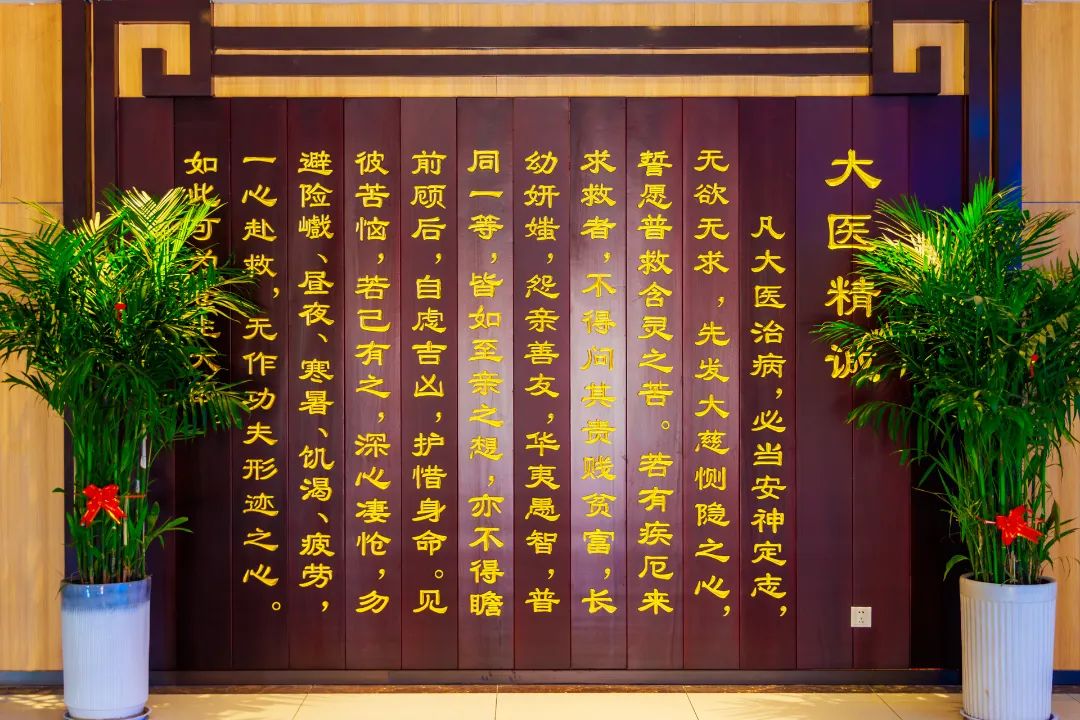 大医精诚
凡大医治病，必当安神定志，
无欲无求，先发大慈恻隐之心，
誓愿普救含灵之苦。若有疾厄来
求救者，不得问其贵贱贫富，长
幼妍媸，怨亲善友，华夷愚智，普
同一等，皆如至亲之想，亦不得瞻
前顾后，自虑吉凶，护惜身命。见
彼苦恼，若己有之，深心凄怆，勿
避险巇、昼夜、寒暑、饥渴、疲劳，
一心赴救，无作功夫形迹之心。
如此可为生大